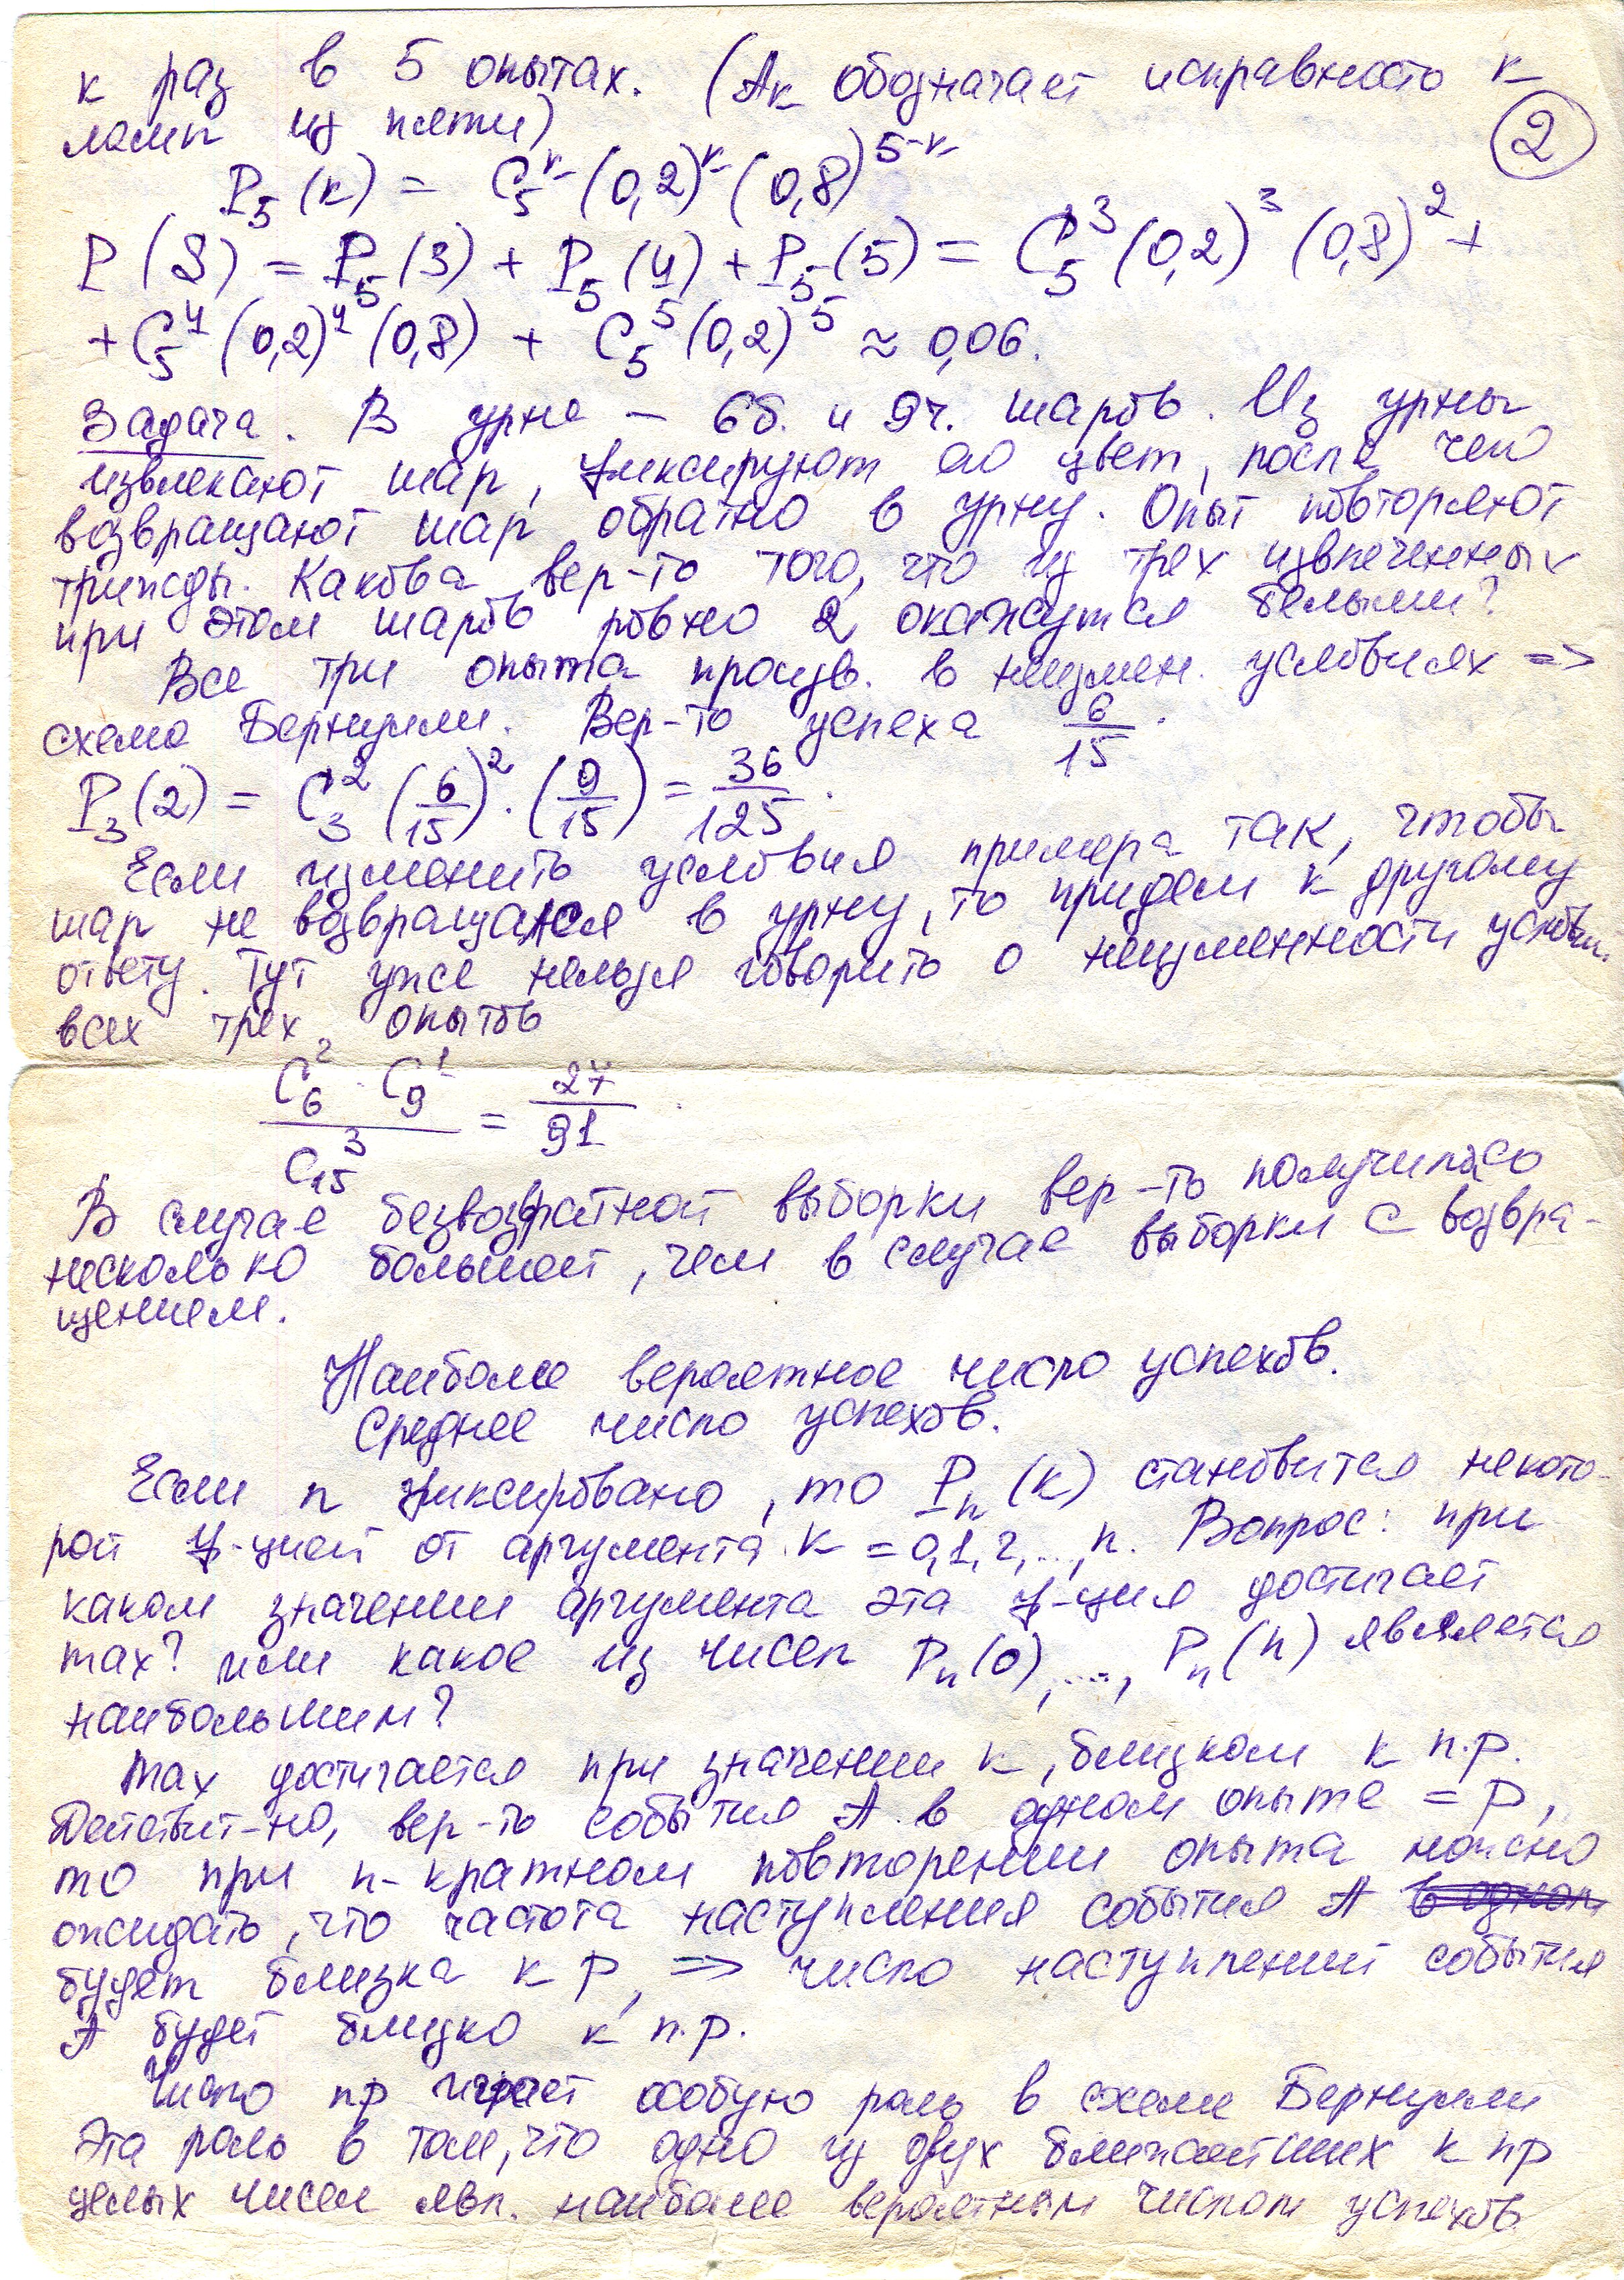 к раз в 5 опытах. (Aк обозначает исправность к
ламп из пяти)
②
P₅(к) = C₅ᵏ (0,2)ᵏ (0,8)⁵⁻ᵏ
P(B) = P₅(3) + P₅(4) + P₅(5) = C₅³ (0,2)³ (0,8)² +
+ C₅⁴ (0,2)⁴ (0,8) + C₅⁵ (0,2)⁵ ≈ 0,06.
Задача. В урне – 6б. и 9ч. шаров. Из урны
извлекают шар, фиксируют его цвет, после чего
возвращают шар обратно в урну. Опыт повторяют
трижды. Какова вер-ть того, что из трех извлеченных
при этом шаров ровно 2 окажутся белыми?
Все три опыта произв. в неизмен. условиях =>
схема Бернулли. Вер-ть успеха 6/15.
P₃(2) = C₃² (6/15)² · (9/15) = 36/125.
Если изменить условия примера так, чтобы
шар не возвращался в урну, то придем к другому
ответу. Тут уже нельзя говорить о неизменности услови.
всех трех опытов
C₆² · C₉¹ / C₁₅³ = 27/91.
В случае безвозвратной выборки вер-ть получилась
несколько большей, чем в случае выборки с возвра-
щением.
Наиболее вероятное число успехов.
Среднее число успехов.
Если n фиксировано, то Pₙ(к) становится некото-
рой ф-цией от аргумента к = 0,1,2,...,n. Вопрос: при
каком значении аргумента эта ф-ция достигает
max? или какое из чисел Pₙ(0),..., Pₙ(n) является
наибольшим?
max достигается при значении к, близком к n.p.
Действит-но, вер-ть события A в одном опыте = p,
то при n-кратном повторении опыта можно
ожидать, что частота наступления события A в одном
будет близка к p, => число наступлений события
A будет близко к n.p.
Число np играет особую роль в схеме Бернулли
Эта роль в том, что одно из двух ближайших к np
целых чисел явл. наиболее вероятным числом успехов